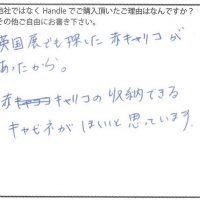 他社ではなく Handle でご購入頂いたご理由はなんですか?
その他ご自由にお書き下さい。
英国展でも探した 赤キャリコが
あったから。
赤キャリコの収納できる
キャビネがほしいと思っています。